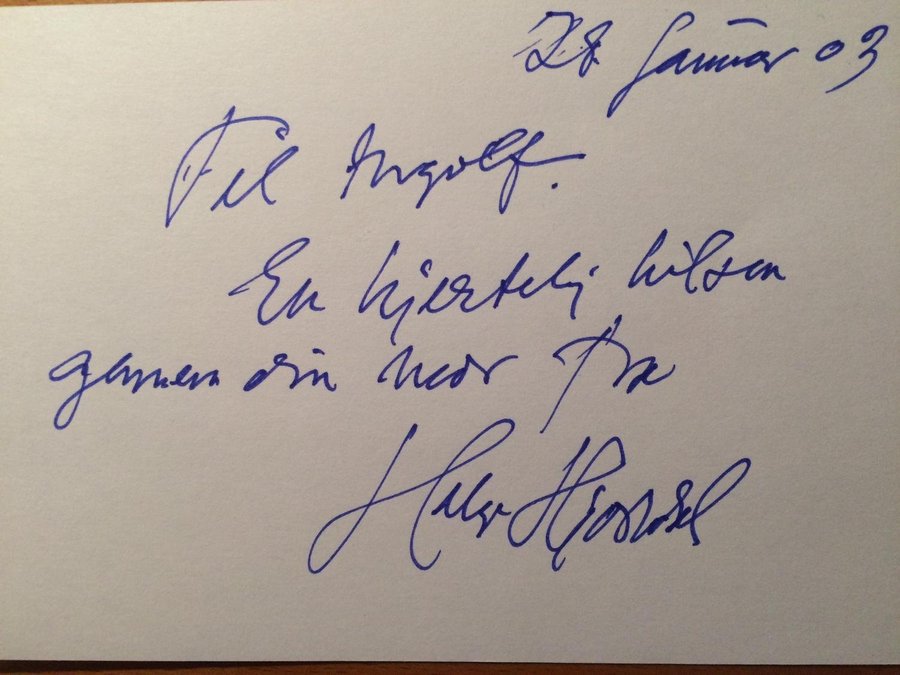 28 Januar 03
Til Ingolf.
En hjertelig hilsen
gennem din mor fra
Helge